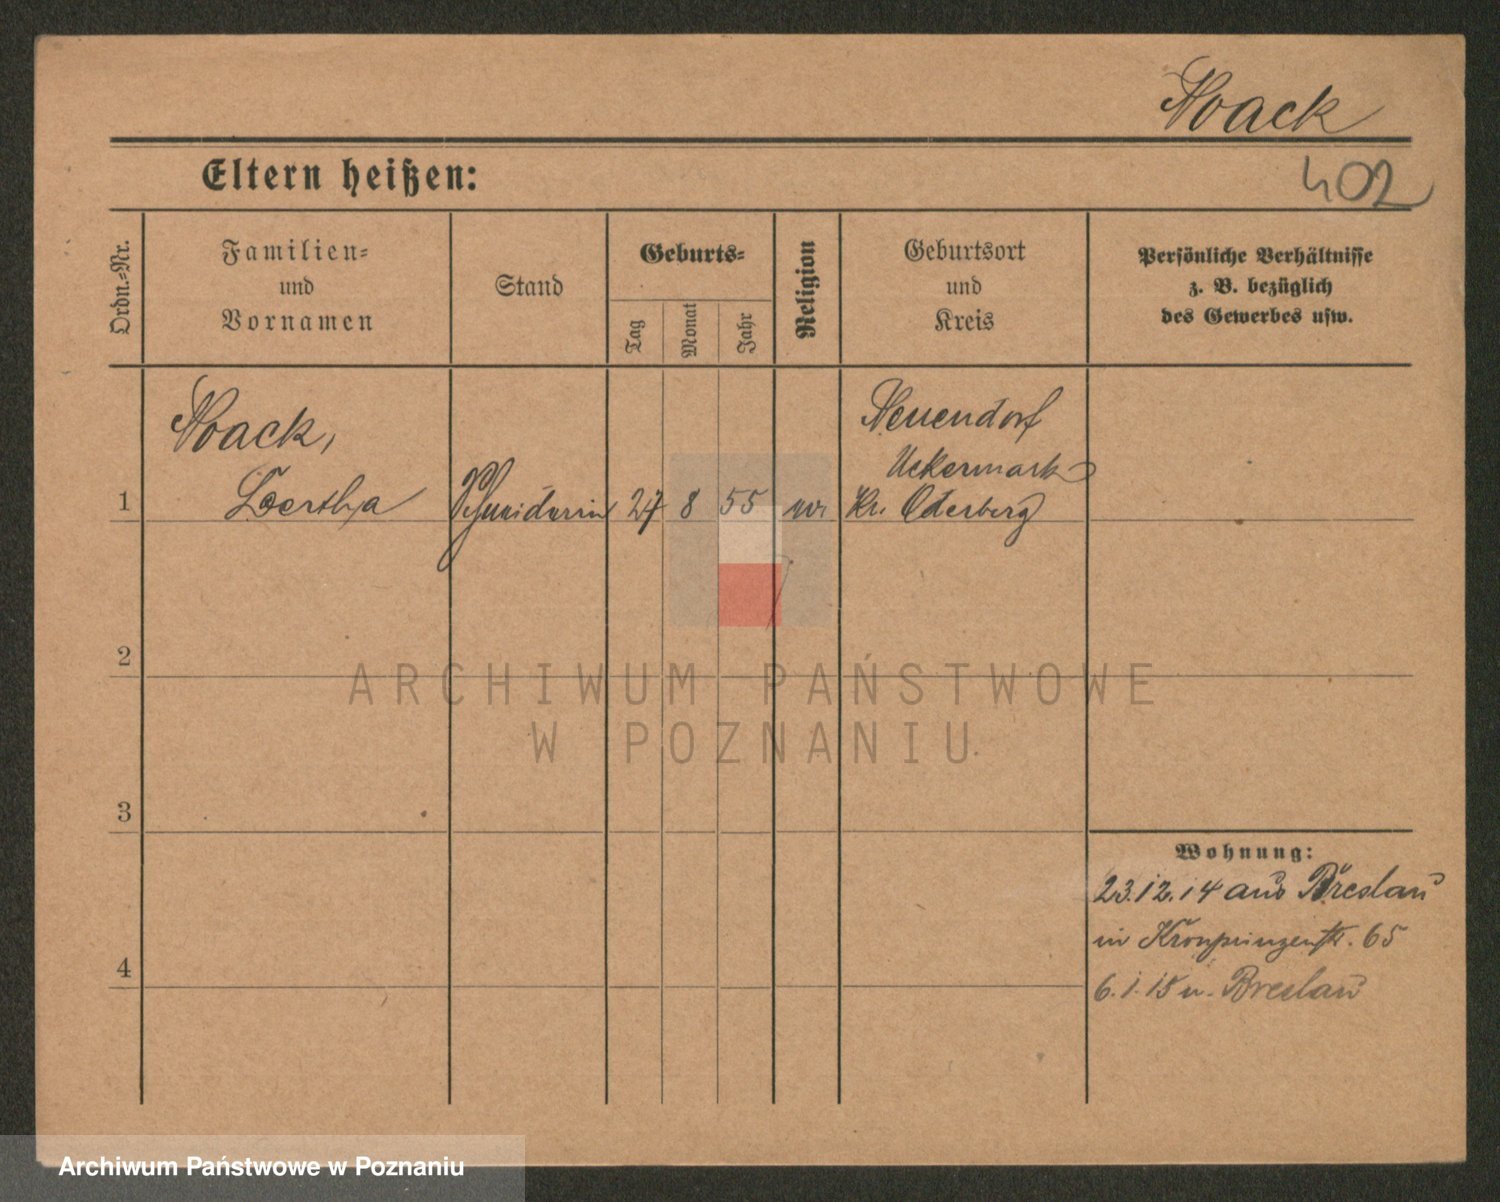 Noack
402
Eltern heißen:
Ordn.-Nr.
Familien-
und
Vornamen
Stand
Geburts-
Tag
Monat
Jahr
Religion
Geburtsort
und
Kreis
Persönliche Verhältnisse
z. B. bezüglich
des Gewerbes usw.
Noack,
Bertha
Neuendorf
Uckermark
1 Schneiderin 27 8 55 ev. Kr. Oderberg
2
ARCHIWUM PAŃSTWOWE
W POZNANIU
3
Wohnung:
23.12.14 aus Breslau
in Kronprinzenstr. 65
4
6.1.15 n. Breslau
Archiwum Państwowe w Poznaniu